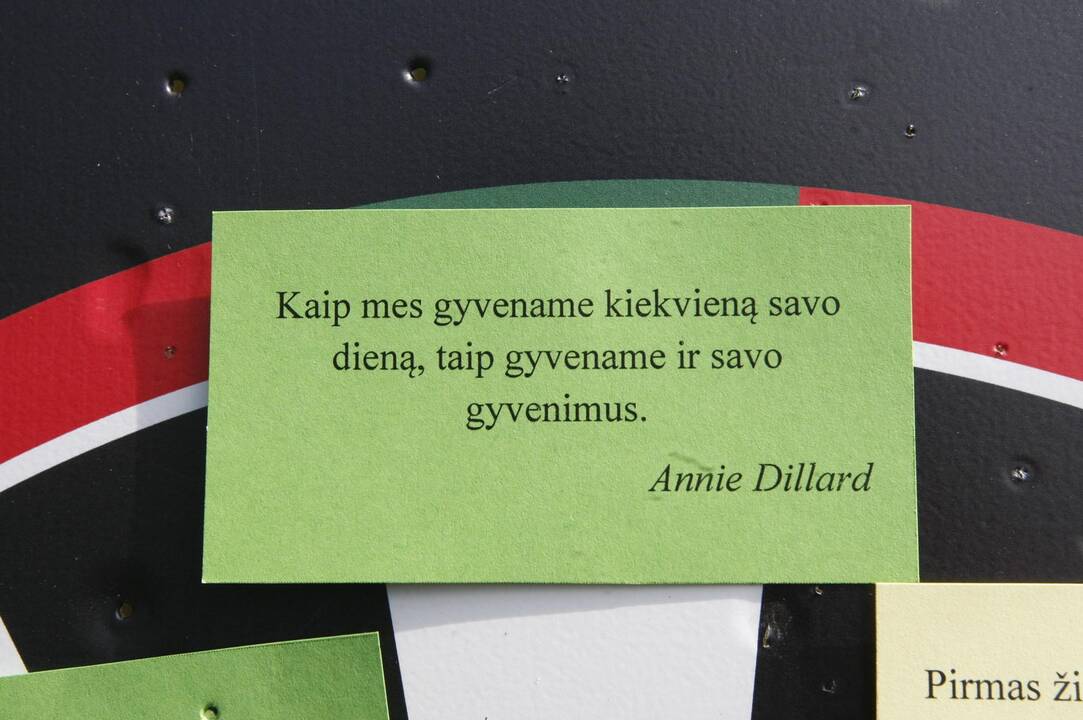 Kaip mes gyvename kiekvieną savo
dieną, taip gyvename ir savo
gyvenimus.
Annie Dillard
Pirmas